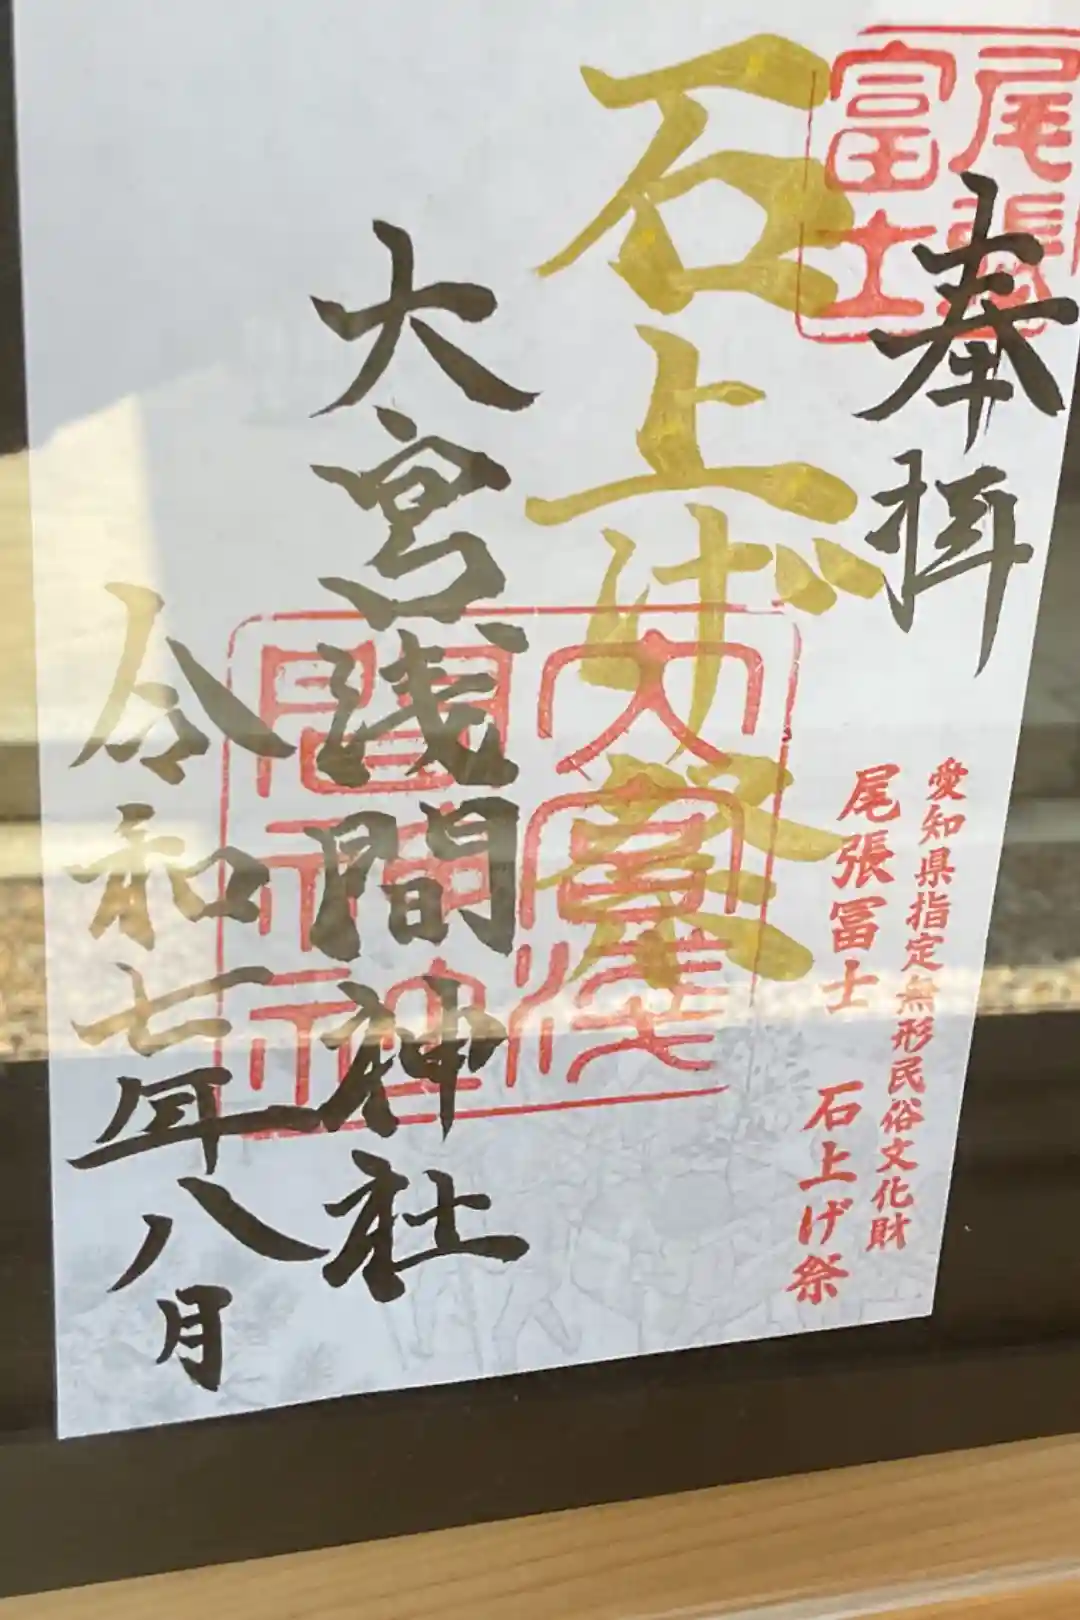 尾張
冨士
奉拝
愛知県指定無形民俗文化財
尾張冨士 石上げ祭
石上げ祭
大宮浅
間神社
大宮浅間神社
令和七年八月